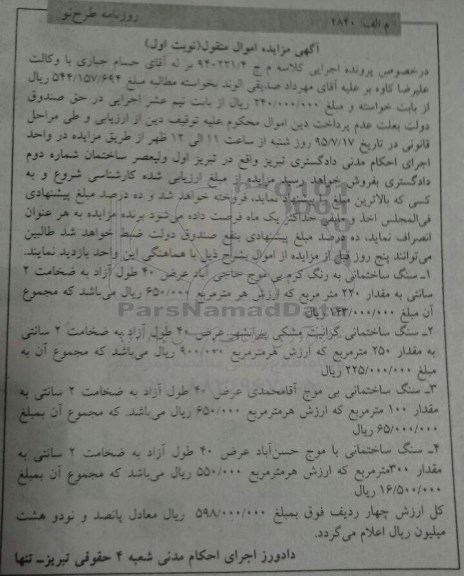 روزنامه طرح نو
م الف: ۲۸۴۰
آگهی مزایده اموال منقول(نوبت اول)
درخصوص پرونده اجرایی کلاسه م ج ۹۴۰۲۲۱/۴ بر له آقای حسام جباری با وکالت
علیرضا کاوه بر علیه آقای مهرداد صدیقی الوند بخواسته مطالبه مبلغ ۵۴۴/۱۵۷/۶۹۴ ریال
از بابت خواسته و مبلغ ۲۴۰/۰۰۰/۰۰۰ ریال از بابت نیم عشر اجرایی در حق صندوق
دولت بعلت عدم پرداخت دین اموال محکوم علیه توقیف دین از ارزیابی و طی مراحل
قانونی در تاریخ ۹۵/۷/۱۷ روز شنبه از ساعت ۱۱ الی ۱۲ ظهر از طریق مزایده در واحد
اجرای احکام مدنی دادگستری تبریز واقع در تبریز اول ولیعصر ساختمان شماره دوم
دادگستری بفروش خواهد رسید مزایده از مبلغ ارزیابی شده کارشناسی شروع و به
کسی که بالاترین مبلغ را پیشنهاد نماید، فروخته خواهد شد و ده درصد مبلغ پیشنهادی
فی‌المجلس اخذ و مابقی حداکثر یک ماه فرصت داده می‌شود برنده مزایده به هر عنوان
انصراف نماید، ده درصد مبلغ پیشنهادی بنفع صندوق دولت ضبط خواهد شد طالبین
می‌توانند پنج روز قبل از مزایده از اموال بشرح ذیل با هماهنگی این واحد بازدید نمایند.
۱ـ سنگ ساختمانی به رنگ کرم بی موج حاجی آباد عرض ۴۰ طول آزاد به ضخامت ۲
سانتی به مقدار ۲۲۰ متر مربع که ارزش هر مترمربع ۶۵۰/۰۰۰ ریال می‌باشد که مجموع
آن مبلغ ۱۴۳/۰۰۰/۰۰۰ ریال
۲ـ سنگ ساختمانی گرانیت مشکی پیرانشهر عرض ۴۰ طول آزاد به ضخامت ۲ سانتی
به مقدار ۲۵۰ مترمربع که ارزش هرمترمربع ۹۰۰/۰۰۰ ریال می‌باشد که مجموع آن به
مبلغ ۲۲۵/۰۰۰/۰۰۰ ریال
۳ـ سنگ ساختمانی بی موج آقامحمدی عرض ۴۰ طول آزاد به ضخامت ۲ سانتی به
مقدار ۱۰۰ مترمربع که ارزش هرمترمربع ۶۵۰/۰۰۰ ریال می‌باشد. که مجموع آن بمبلغ
۶۵/۰۰۰/۰۰۰ ریال
۴ـ سنگ ساختمانی با موج حسن‌آباد عرض ۴۰ طول آزاد به ضخامت ۲ سانتی به
مقدار ۳۰۰مترمربع که ارزش هرمترمربع ۵۵۰/۰۰۰ ریال می‌باشد که مجموع آن بمبلغ
۱۶/۵۰۰/۰۰۰ ریال
کل ارزش چهار ردیف فوق بمبلغ ۵۹۸/۰۰۰/۰۰۰ ریال معادل پانصد و نودو هشت
میلیون ریال اعلام می‌گردد.
دادورز اجرای احکام مدنی شعبه ۴ حقوقی تبریزـ تنها
ParsNamadData